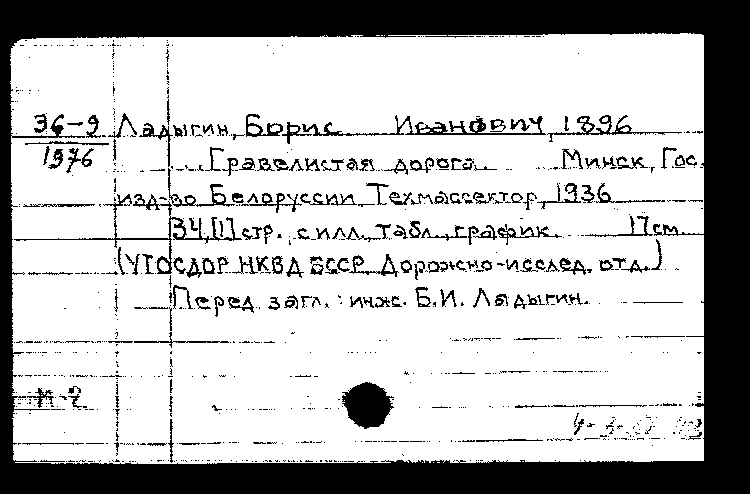 36-9 Ладыгин, Борис Иванович, 1896
1976 ...Гравелистая дорога. Минск, Гос.
изд-во Белоруссии, Техмассектор, 1936
34,[1] стр., с илл., табл., график. 17 см.
(УГОСДОР НКВД БССР. Дорожно-исслед. отд.)
Перед загл.: инж. Б.И. Ладыгин.